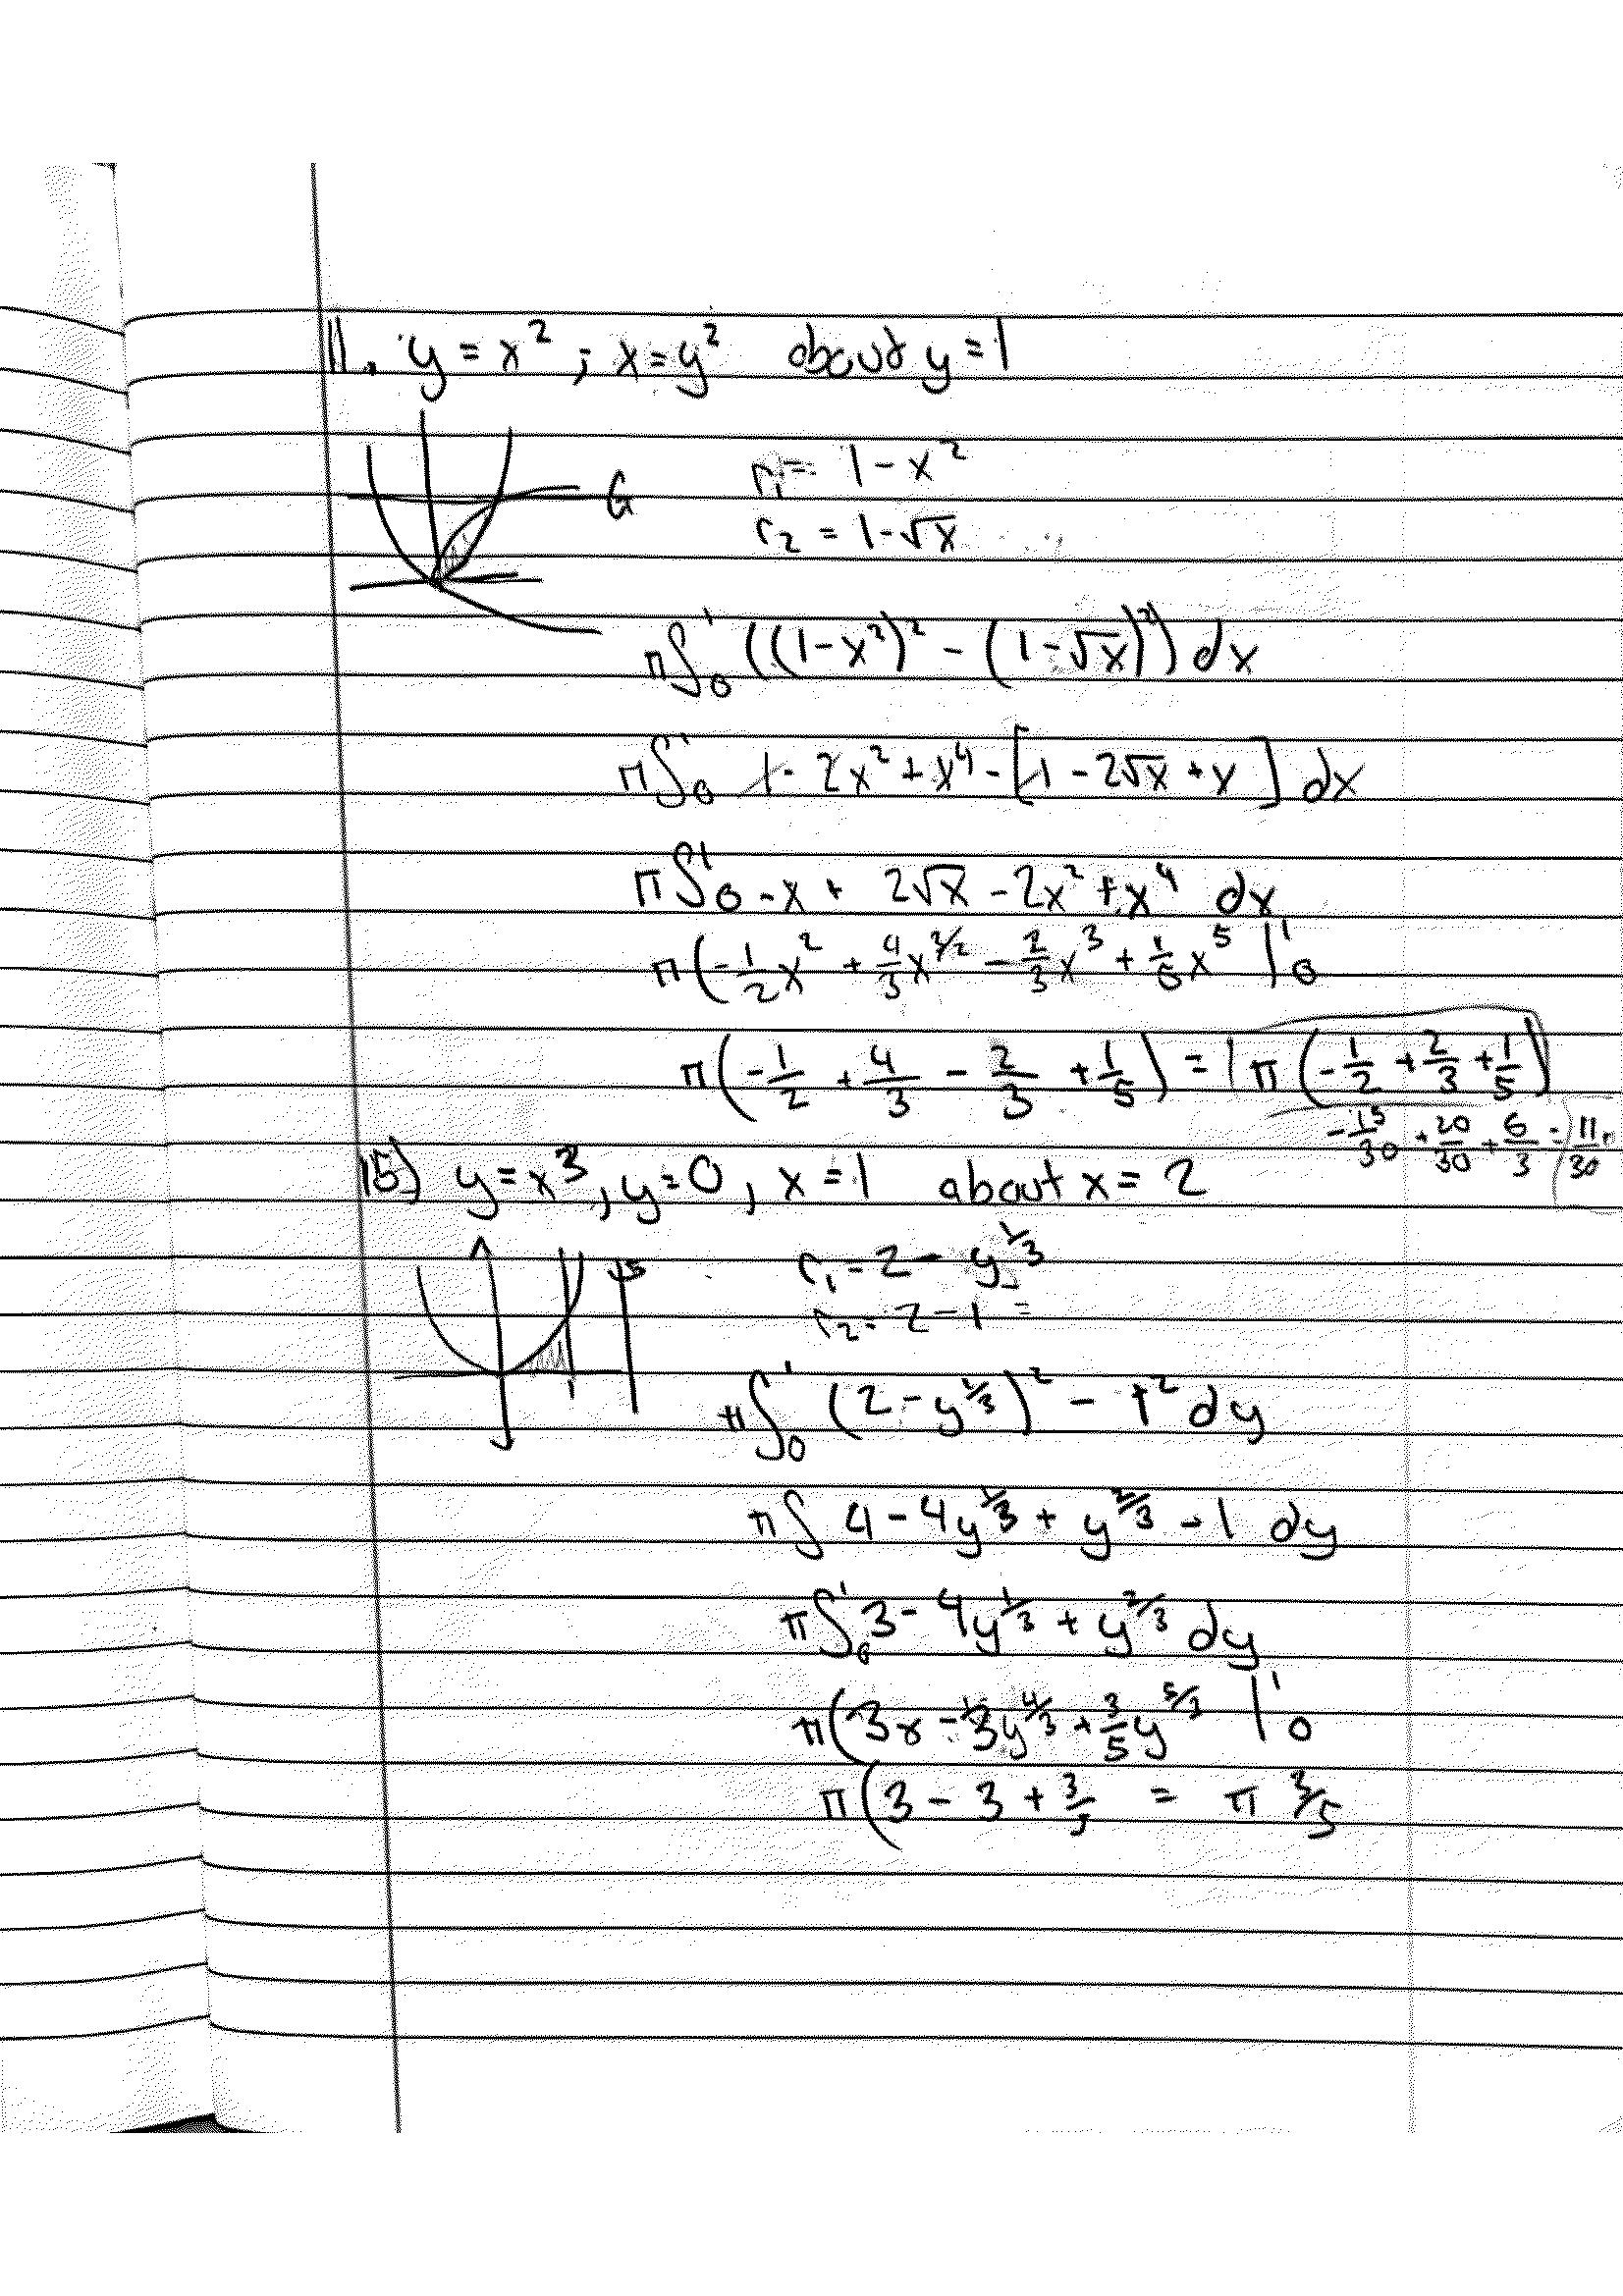 11. y = x² ; x = y² about y = 1
r₁ = 1 - x²
r₂ = 1 - √x
π∫₀¹ ((1-x²)² - (1-√x)²) dx
π∫₀¹ 1 - 2x² + x⁴ - [1 - 2√x + x] dx
π∫₀¹ -x + 2√x - 2x² + x⁴ dx
π(-1/2 x² + 4/3 x^3/2 - 2/3 x³ + 1/5 x⁵ |₀¹
π(-1/2 + 4/3 - 2/3 + 1/5) = π(-1/2 + 2/3 + 1/5)
-15/30 + 20/30 + 6/3 = 11/30 π
15) y = x³, y = 0, x = 1 about x = 2
r₁ = 2 - y^1/3
r₂ = 2 - 1 =
π∫₀¹ (2 - y^1/3)² - 1² dy
π∫ 4 - 4y^1/3 + y^2/3 - 1 dy
π∫₀¹ 3 - 4y^1/3 + y^2/3 dy
π(3x - 3y^4/3 + 3/5 y^5/3 |₀¹
π(3 - 3 + 3/5 = π 3/5